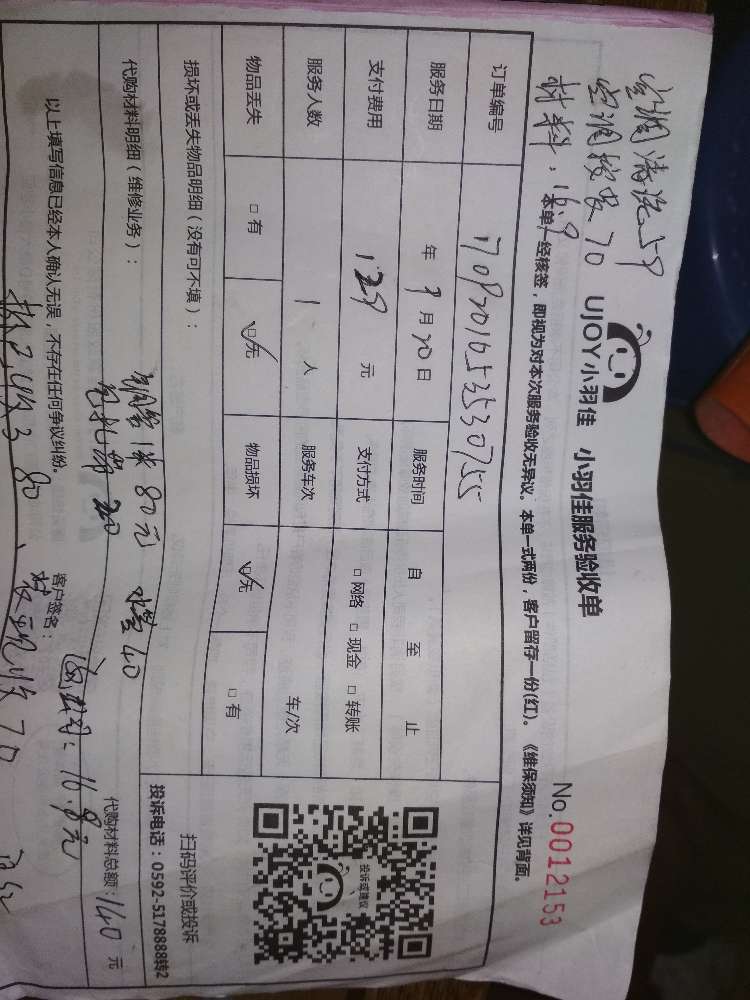 空调清洗59
空调拆装70
材料：16.9
UJOY小羽佳 小羽佳服务验收单
No. 0012153
本单一经核签，即视为对本次服务验收无异议。本单一式两份，客户留存一份(红)。《维保须知》详见背面。
订单编号 17092016525530755
服务日期 年 9月20日 服务时间 自 至 止
支付费用 129 元 支付方式 □网络 □现金 □转账
服务人数 1 人 服务车次 车/次
物品丢失 □有 ☑无 物品损坏 ☑无 □有
损坏或丢失物品明细（没有可不填）：
投诉或建议
扫码评价或投诉
投诉电话：0592-5178888转2
代购材料明细（维修业务）： 铜管1米80元 水管40
20
代购材料总额：140 元
以上填写信息已经本人确认无误，不存在任何争议纠纷。
客户签名：
16.9元
80
70